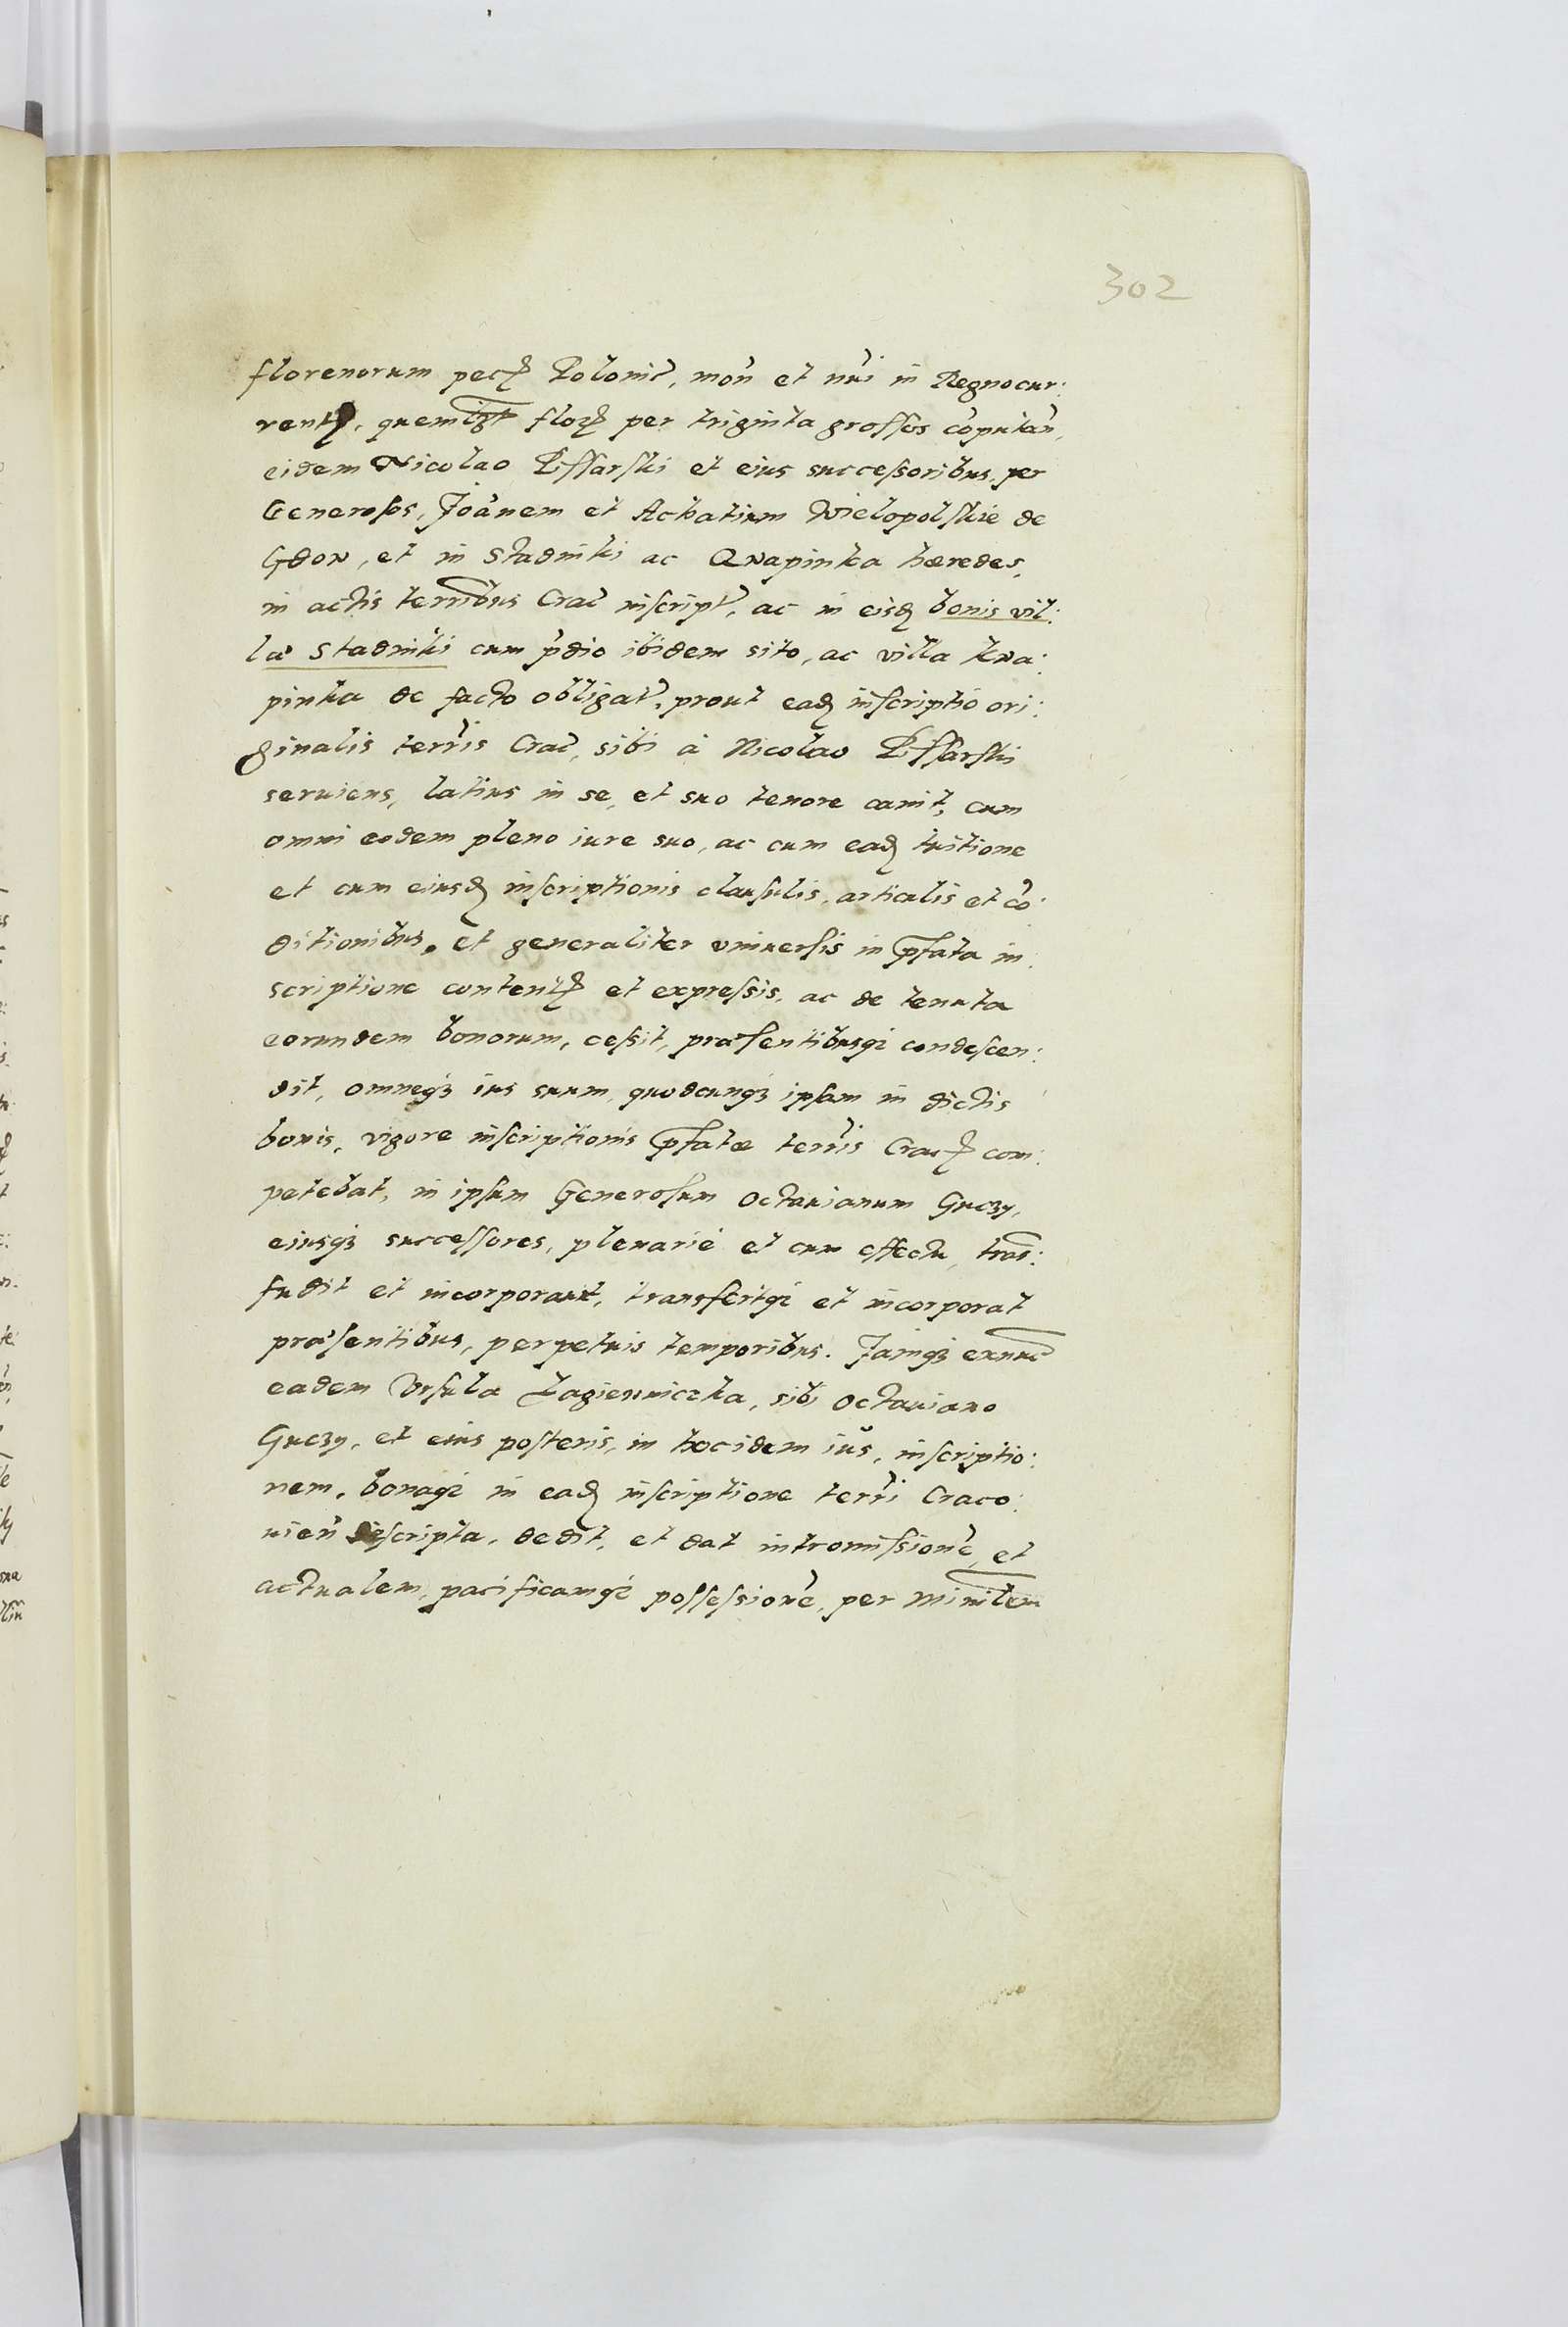 302
florenorum pecꝭ Polonić, moñ et nri in Regno cur:
rentꝭ, quemlꝫt florꝭ per triginta grossos cõputañ,
eidem Nicolao Pissarski et eius successoribus, per
Generosos, Joãnem et Achatium Wielopolskie de
Gdow, et in Stadniki ac Qwapinka hæredes,
in actis terribus Crac̃ inscript̃, ac in eisdꝫ bonis vil:
læ Stadniki cum p̃dio ibidem sito, ac villa Kwa:
pinka de facto obligat̃, prout eadꝫ inscriptio ori:
ginalis terris Crac̃, sibi à Nicolao Pissarski
seruiens, latius in se, et suo tenore canit, cum
omni eodem pleno iure suo, ac cum eadꝫ tuitione
et cum eiusdꝫ inscriptionis clausulis, articulis et cõ:
ditionibus, et generaliter vniuersis in p̃fata in:
scriptione contentꝭ et expressis, ac de tenuta
eorundem bonorum, cessit, præsentibusqꝫ condescen:
dit, omneqꝫ ius suum, quodcunqꝫ ipsam in dictis
bonis, vigore inscriptionis p̃fatæ terris Cracꝭ com:
petebat, in ipsum Generosum Octauianum Guczy,
eiusqꝫ successores, plenariè et cum effectu, tras̃:
fudit et incorporauit, transfertqꝫ et incorporat
præsentibus, perpetuis temporibus. Jamqꝫ exnunc̃
eadem Vrsula Łagiewniczka, sibi Octauiano
Guczy, et eius posteris, in hoc idem iŭs, inscriptio:
nem, bonaqꝫ in eadꝫ inscriptione terri Craco:
uieñ descripta, dedit, et dat intromissionẽ, et
actualem, pacificamqꝫ possessionẽ, per Minilem